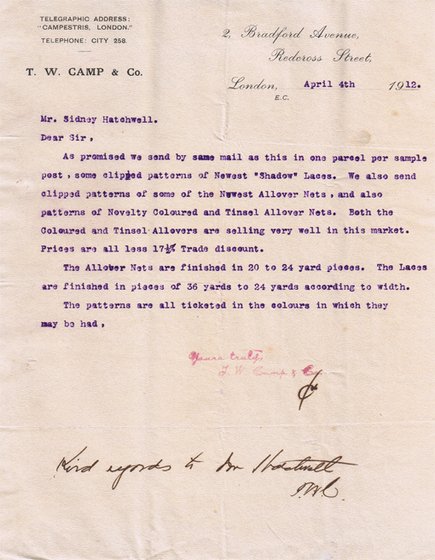 TELEGRAPHIC ADDRESS:
"CAMPESTRIS, LONDON."
TELEPHONE: CITY 258.
T. W. CAMP & Co.
2, Bradford Avenue,
Redcross Street,
London, April 4th 1912.
E.C.
Mr. Sidney Hatchwell.
Dear Sir,
As promised we send by same mail as this in one parcel per sample
post, some clipped patterns of Newest "Shadow" Laces. We also send
clipped patterns of some of the Newest Allover Nets, and also
patterns of Novelty Coloured and Tinsel Allover Nets. Both the
Coloured and Tinsel Allovers are selling very well in this market.
Prices are all less 17½% Trade discount.
The Allover Nets are finished in 20 to 24 yard pieces. The Laces
are finished in pieces of 36 yards to 24 yards according to width.
The patterns are all ticketed in the colours in which they
may be had,
Yours truly,
T. W. Camp & Co
Kind regards to Mr Hatchwell
TWC.